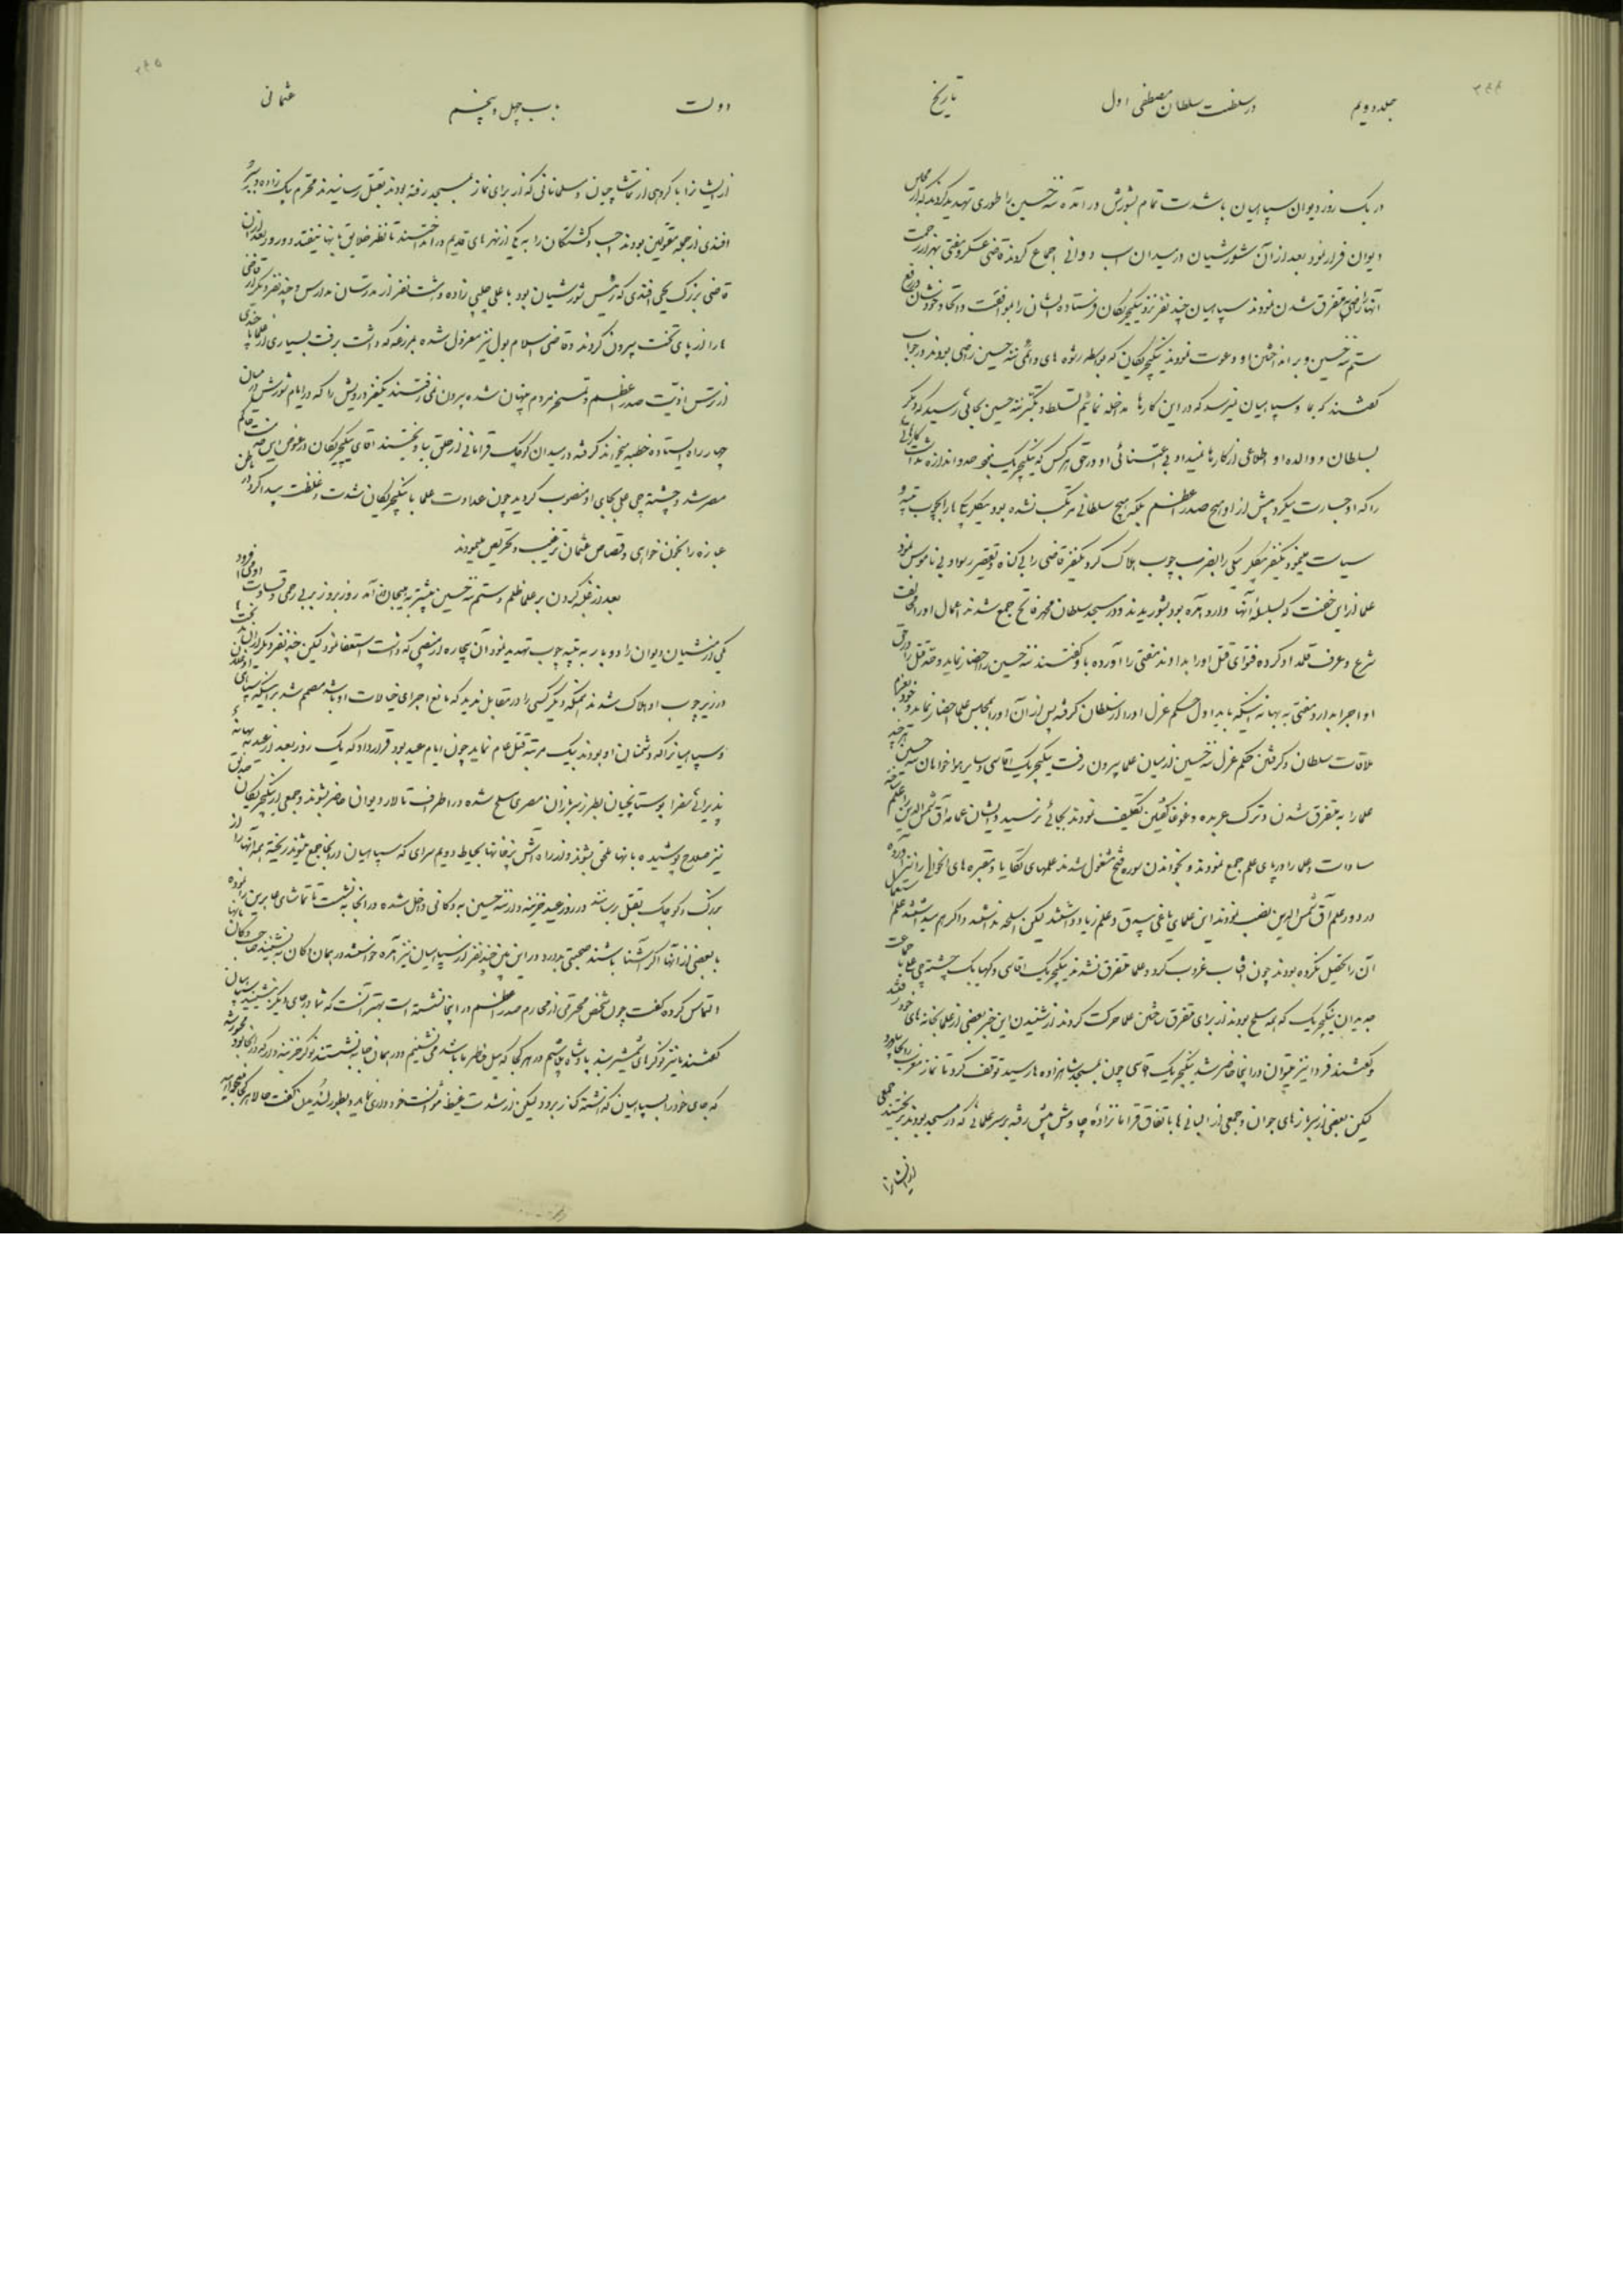 جلد دویم
در سلطنت سلطان مصطفی اول
تاریخ
در یک روز دیوان سپاهیان با شدت تمام بشورش در آمده مته حسین را طوری تهدید کردند که از مجلس
دیوان فرار نمود بعد از آن شورشیان در میدان اسب دوانی اجماع کردند قاضی عسکر و مفتی بهزار زحمت
آنها را راضی بمتفرق شدن نمودند سپاهیان چند نفر نزد ینکچریکان فرستاده ایشان را بموافقت و اتحاد خودشان در دفع
ستم مته حسین و بر انداختن او دعوت نمودند ینکچریکان که بواسطه رشوه های دائمی از مته حسین راضی بودند در جواب
گفتند که بما و سپاهیان نمیرسد که در این کارها مداخله نمائیم تسلط و تکبر مته حسین بجائی رسید که دیگر
بسلطان و والده او اطلاعی از کارها نمیداد بی اعتنائی او در حق هر کس که ینکچریک نبود حد و اندازه نداشت کارهائی
را که او جسارت میکرد پیش از او هیچ صدر اعظم بلکه هیچ سلطانی مرتکب نشده بود بیکلربیکی ها را بچوب تنبیه و
سیاست مینمود یکنفر بیکلربیکی را بضرب چوب هلاک کرد یکنفر قاضی را بی گناه و تقصیر رسوا و بی ناموس نمود
علما از این خفت که بسلسله آنها وارد آمده بود بشوریدند و در مسجد سلطان محمد فاتح جمع شدند اعمال او را مخالف
شرع و عرف قلمداد کرده فتوای قتل او را بدادند مفتی را آورده باو گفتند مته حسین را احضار نماید و حد قتل را در حق
او اجرا بدارد مفتی به بهانه اینکه باید اول حکم عزل او را از سلطان گرفته پس از آن او را بمجلس علما احضار نماید خود بعزم
ملاقات سلطان و گرفتن حکم عزل مته حسین از میان علما بیرون رفت ینکچریک آقاسی و سایر هواخواهان مته حسین هر چند
علما را بمتفرق شدن و ترک عربده و غوغا تکلیف نمودند بجائی نرسید ایشان عمامه آق شمس الدین را علم ساخته
سادات و علما را در پای علم جمع نمودند و بخواندن سوره فتح مشغول شدند علمهای تکایا و مقبره های اهالی را نیز آورده
در دور علم آق شمس الدین نصب نمودند این علمای یاغی بیرق و علم زیاد داشتند لیکن اسلحه نداشتند و اگر هم میداشتند علم استعمال
آن را تحصیل نکرده بودند چون آفتاب غروب کرد و علما متفرق نشدند ینکچریک آقاسی و کهیا بیک چشته چی علی با جماعت
صد هزاران ینکچریک که همه مسلح بودند از برای متفرق ساختن علما حرکت کردند از شنیدن این خبر بعضی از علما بخانه های خود رفتند
و گفتند فردا نیز میتوان در اینجا حاضر شد ینکچریک آقاسی چون بمسجد شاهزاده ها رسید توقف کرد تا نماز مغرب را بجا آورد
لیکن بعضی از سربازهای جوان و جمعی از البانی ها باتفاق قرا مانزاده چاوش پیش رفته بر سر علمائی که در مسجد بودند بریختند جمعی
از ایشان را
دولت
باب چهل و پنجم
عثمانی
از ایشان را با گروهی از تماشاچیان و مسلمانانی که از برای نماز بمسجد رفته بودند بقتل رسانیدند محترم بیک زاده و پیر
افندی از جمله مقتولین بودند جسد کشتگان را به یکی از نهرهای قدیم در انداختند تا نظر خلایق بآنها نیفتد دو روز بعد از آن
قاضی بزرگ یحیی افندی که رئیس شورشیان بود با علی چلبی زاده و هشت نفر از مدرسان مدارس و چند نفر دیگر از قاضی
ها را از پای تخت بیرون کردند و قاضی اسلامبول نیز معزول شده بمزرعه که داشت برفت بسیاری از علما چندی
از ترس اذیت صدر اعظم و تمسخر مردم پنهان شده بیرون نمی رفتند یکنفر درویش را که در ایام شورش در میان
چهار راه ایستاده خطبه میخواند گرفته در میدان کوچک قرامانی از حلق بیاویختند آقای ینکچریکان در عوض این خدمت حاکم
مصر شد و چشته چی علی بجای او منصوب گردید چون عداوت علما با ینکچریکان شدت و غلظت پیدا کرد در باطن
عبازه را بخون خواهی و قصاص عثمان ترغیب و تحریص مینمودند
بعد از غلبه کردن بر علما ظلم و ستم مته حسین بیشتر به هیجان آمد روز بروز بر بی رحمی و قساوت او می افزود
یکی از منشیان دیوان را دو بار به تنبیه چوب تهدید نمود آن بیچاره از منصبی که داشت استعفا نمود لیکن چند نفر دیگر از آن بدبخت ها
در زیر چوب او هلاک شدند همینکه دیگر کسی را در مقابل ندید که مانع اجرای خیالات او باشد مصمم شد بر اینکه سپاهی
و سپاهیان را که دشمنان او بودند بیک مرتبه قتل عام نماید چون ایام عید بود قرار داد که یک روز بعد از عید به بهانه
پذیرائی سفرا بوستانچیان بطرز سربازان مصری مسلح شده در اطراف تالار دیوان حاضر بشوند و جمعی از ینکچریکان
نیز سلاح پوشیده بآنها ملحق بشوند و از راه آشپزخانها بحیاط دویم سرای که سپاهیان در آنجا جمع میشوند ریخته همه آنها را از
بزرگ و کوچک بقتل رسانند در روز عید خزینه دار مته حسین به دکانی داخل شده در آنجا نشست تا تماشای عابرین را نموده
با بعضی از آنها اگر آشنا باشند صحبتی بدارد در این بین چند نفر از سپاهیان نیز آمده خواستند در همان دکان بنشینند صاحب دکان
التماس کرده گفت چون شخص محترمی از محارم صدر اعظم در اینجا نشسته است بهتر آنست که شما در جای دیگر بنشینید سپاهیان
گفتند ما نیز نوکرهای شمشیر بند پادشاه هستیم در هر کجا که میل خاطر ما باشد می نشینیم و در همان جا به نشستند نوکر خزینه دار که در آنجا بود مجبور شد
که جای خود را بسپاهیان گذاشته کنار برود لیکن از شدت غیظ نتوانست خودداری نماید و بطور لند لند گفت حالا هر کجا میخواهید